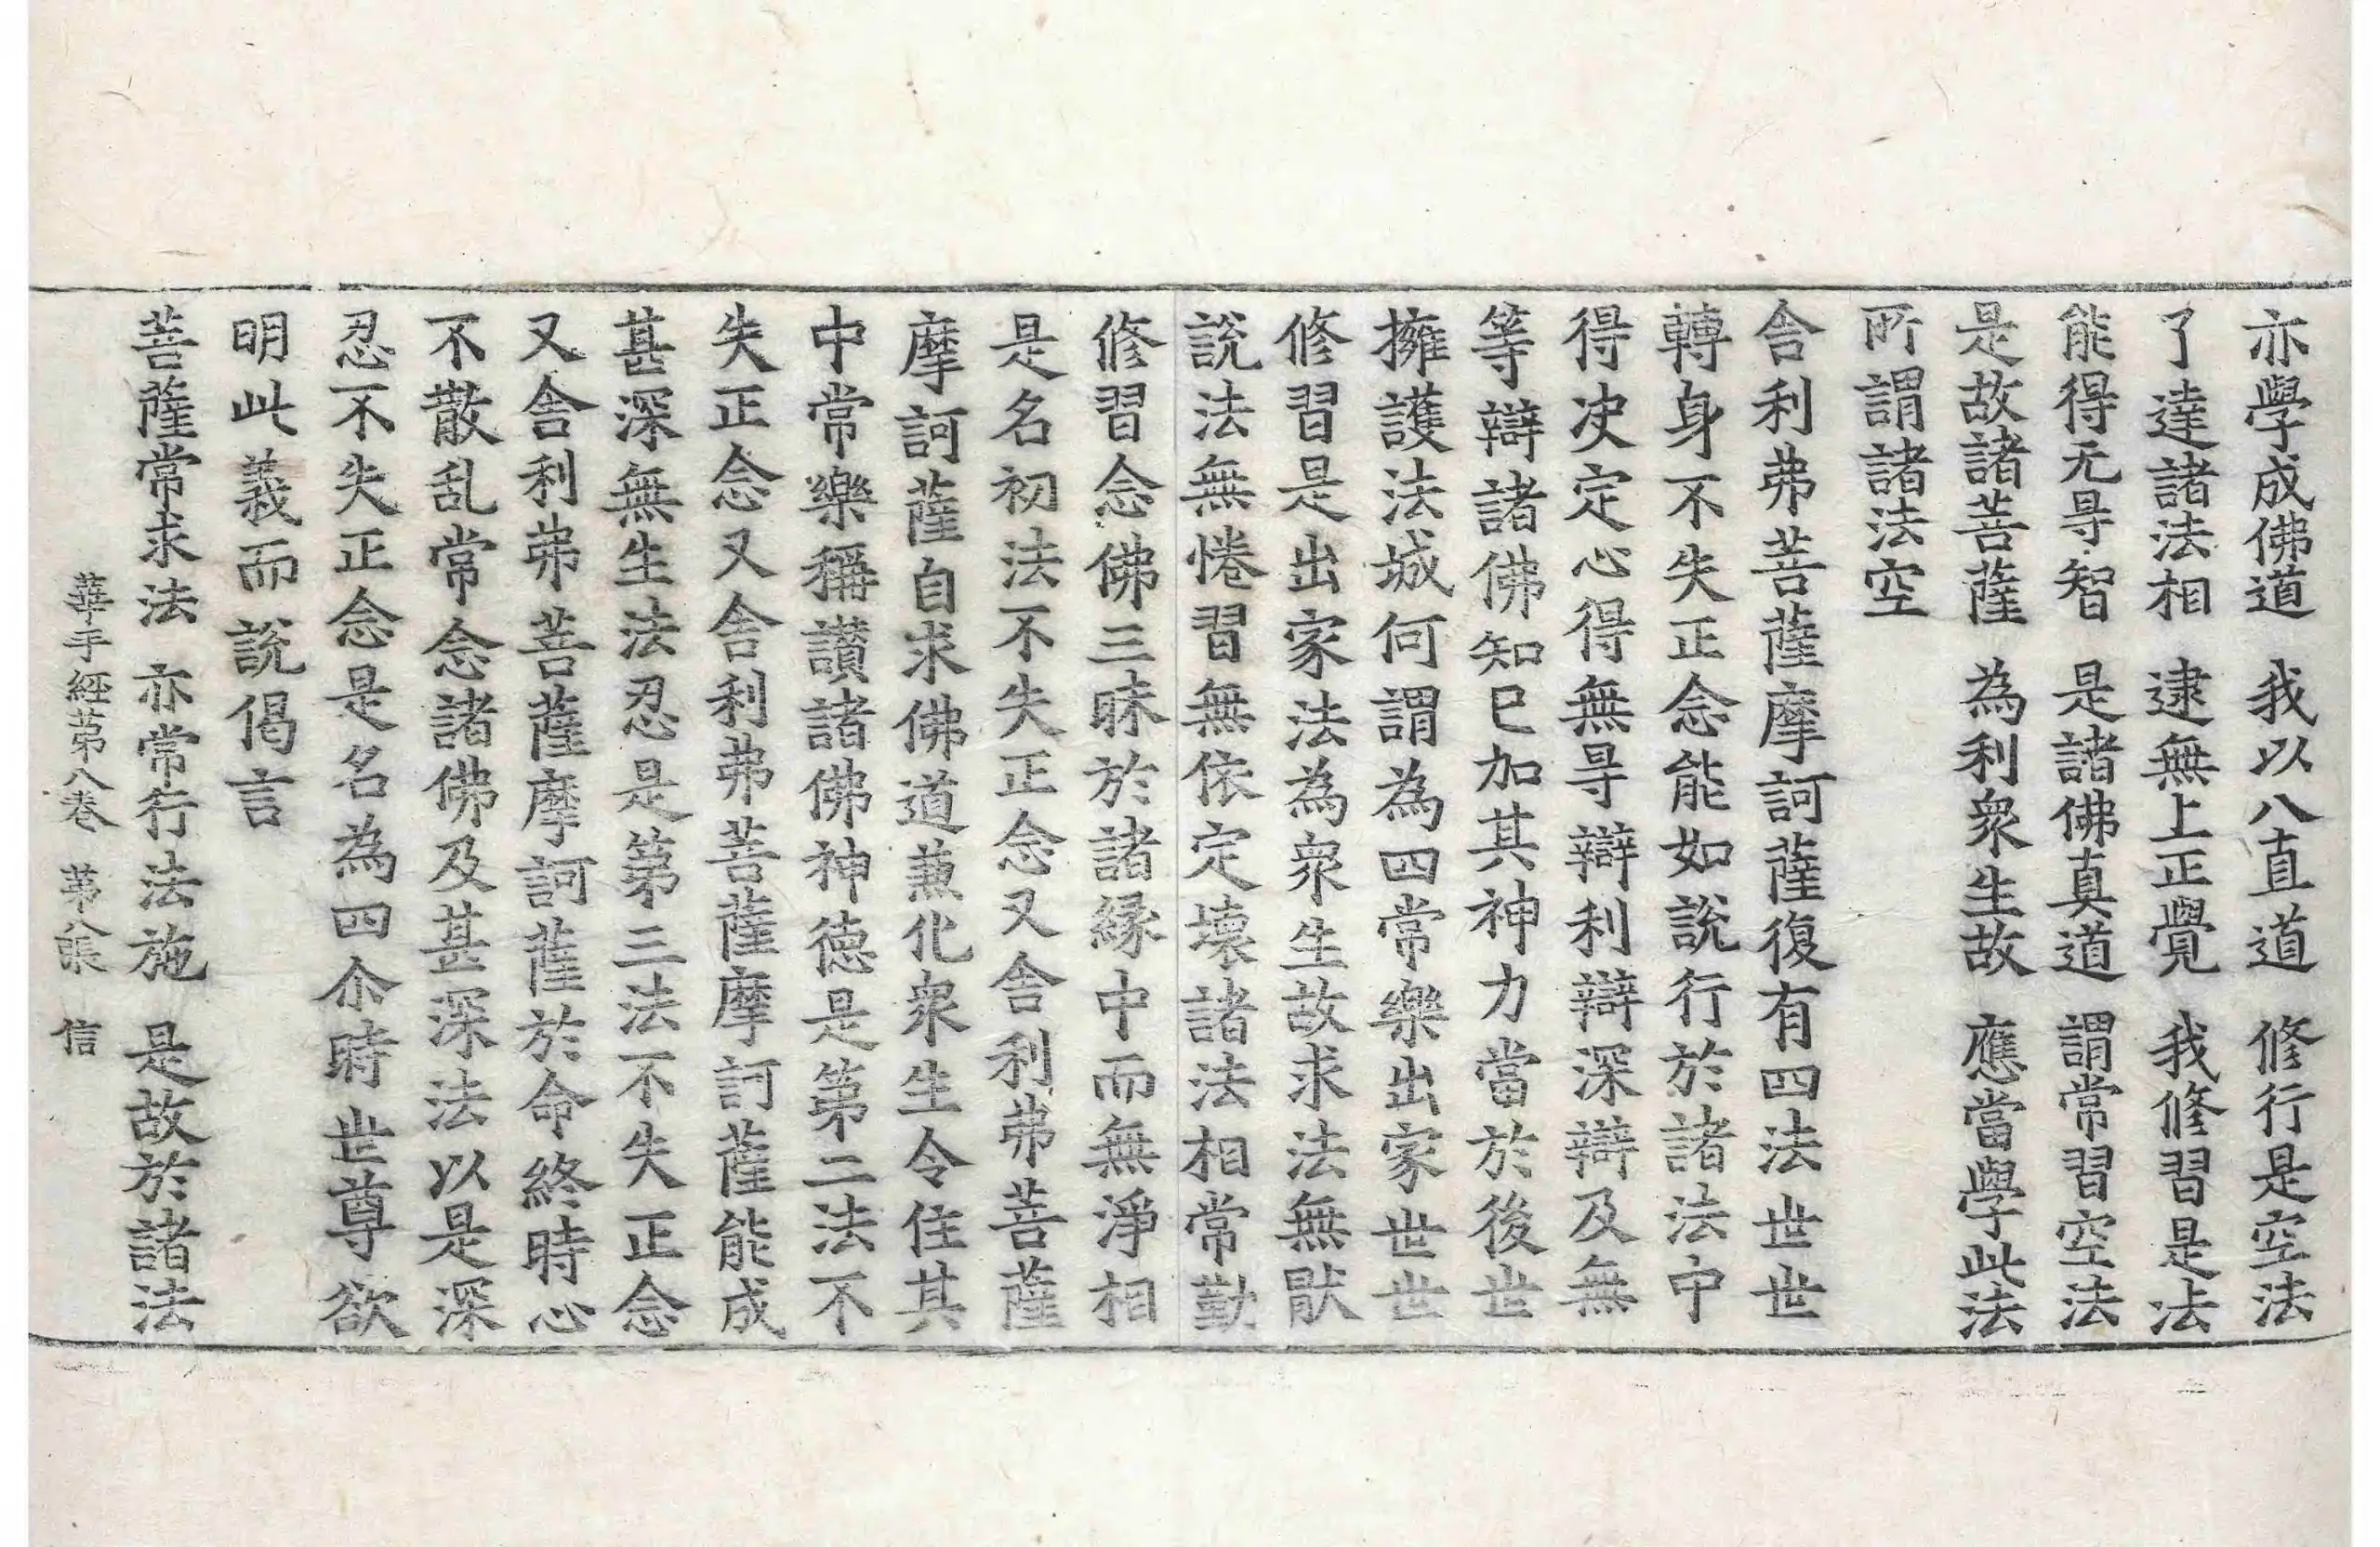 亦學成佛道　我以八直道　修行是空法
了達諸法相　逮無上正覺　我修習是法
能得无㝵智　是諸佛真道　謂常習空法
是故諸菩薩　為利衆生故　應當學此法
所謂諸法空
舎利弗菩薩摩訶薩復有四法世世
轉身不失正念能如說行於諸法中
得决定心得無㝵辯利辯深辯及無
等辯諸佛知已加其神力當於後世
擁護法城何謂為四常樂出家世世
修習是出家法為衆生故求法無猒
說法無惓習無依定壞諸法相常勤
修習念佛三昧於諸緣中而無淨相
是名初法不失正念又舎利弗菩薩
摩訶薩自求佛道兼化衆生令住其
中常樂稱讃諸佛神德是第二法不
失正念又舎利弗菩薩摩訶薩能成
甚深無生法忍是第三法不失正念
又舎利弗菩薩摩訶薩於命終時心
不散乱常念諸佛及甚深法以是深
忍不失正念是名為四尒時世尊欲
明此義而說偈言
菩薩常求法　亦常行法施　是故於諸法
華手経第八卷　第八張　信